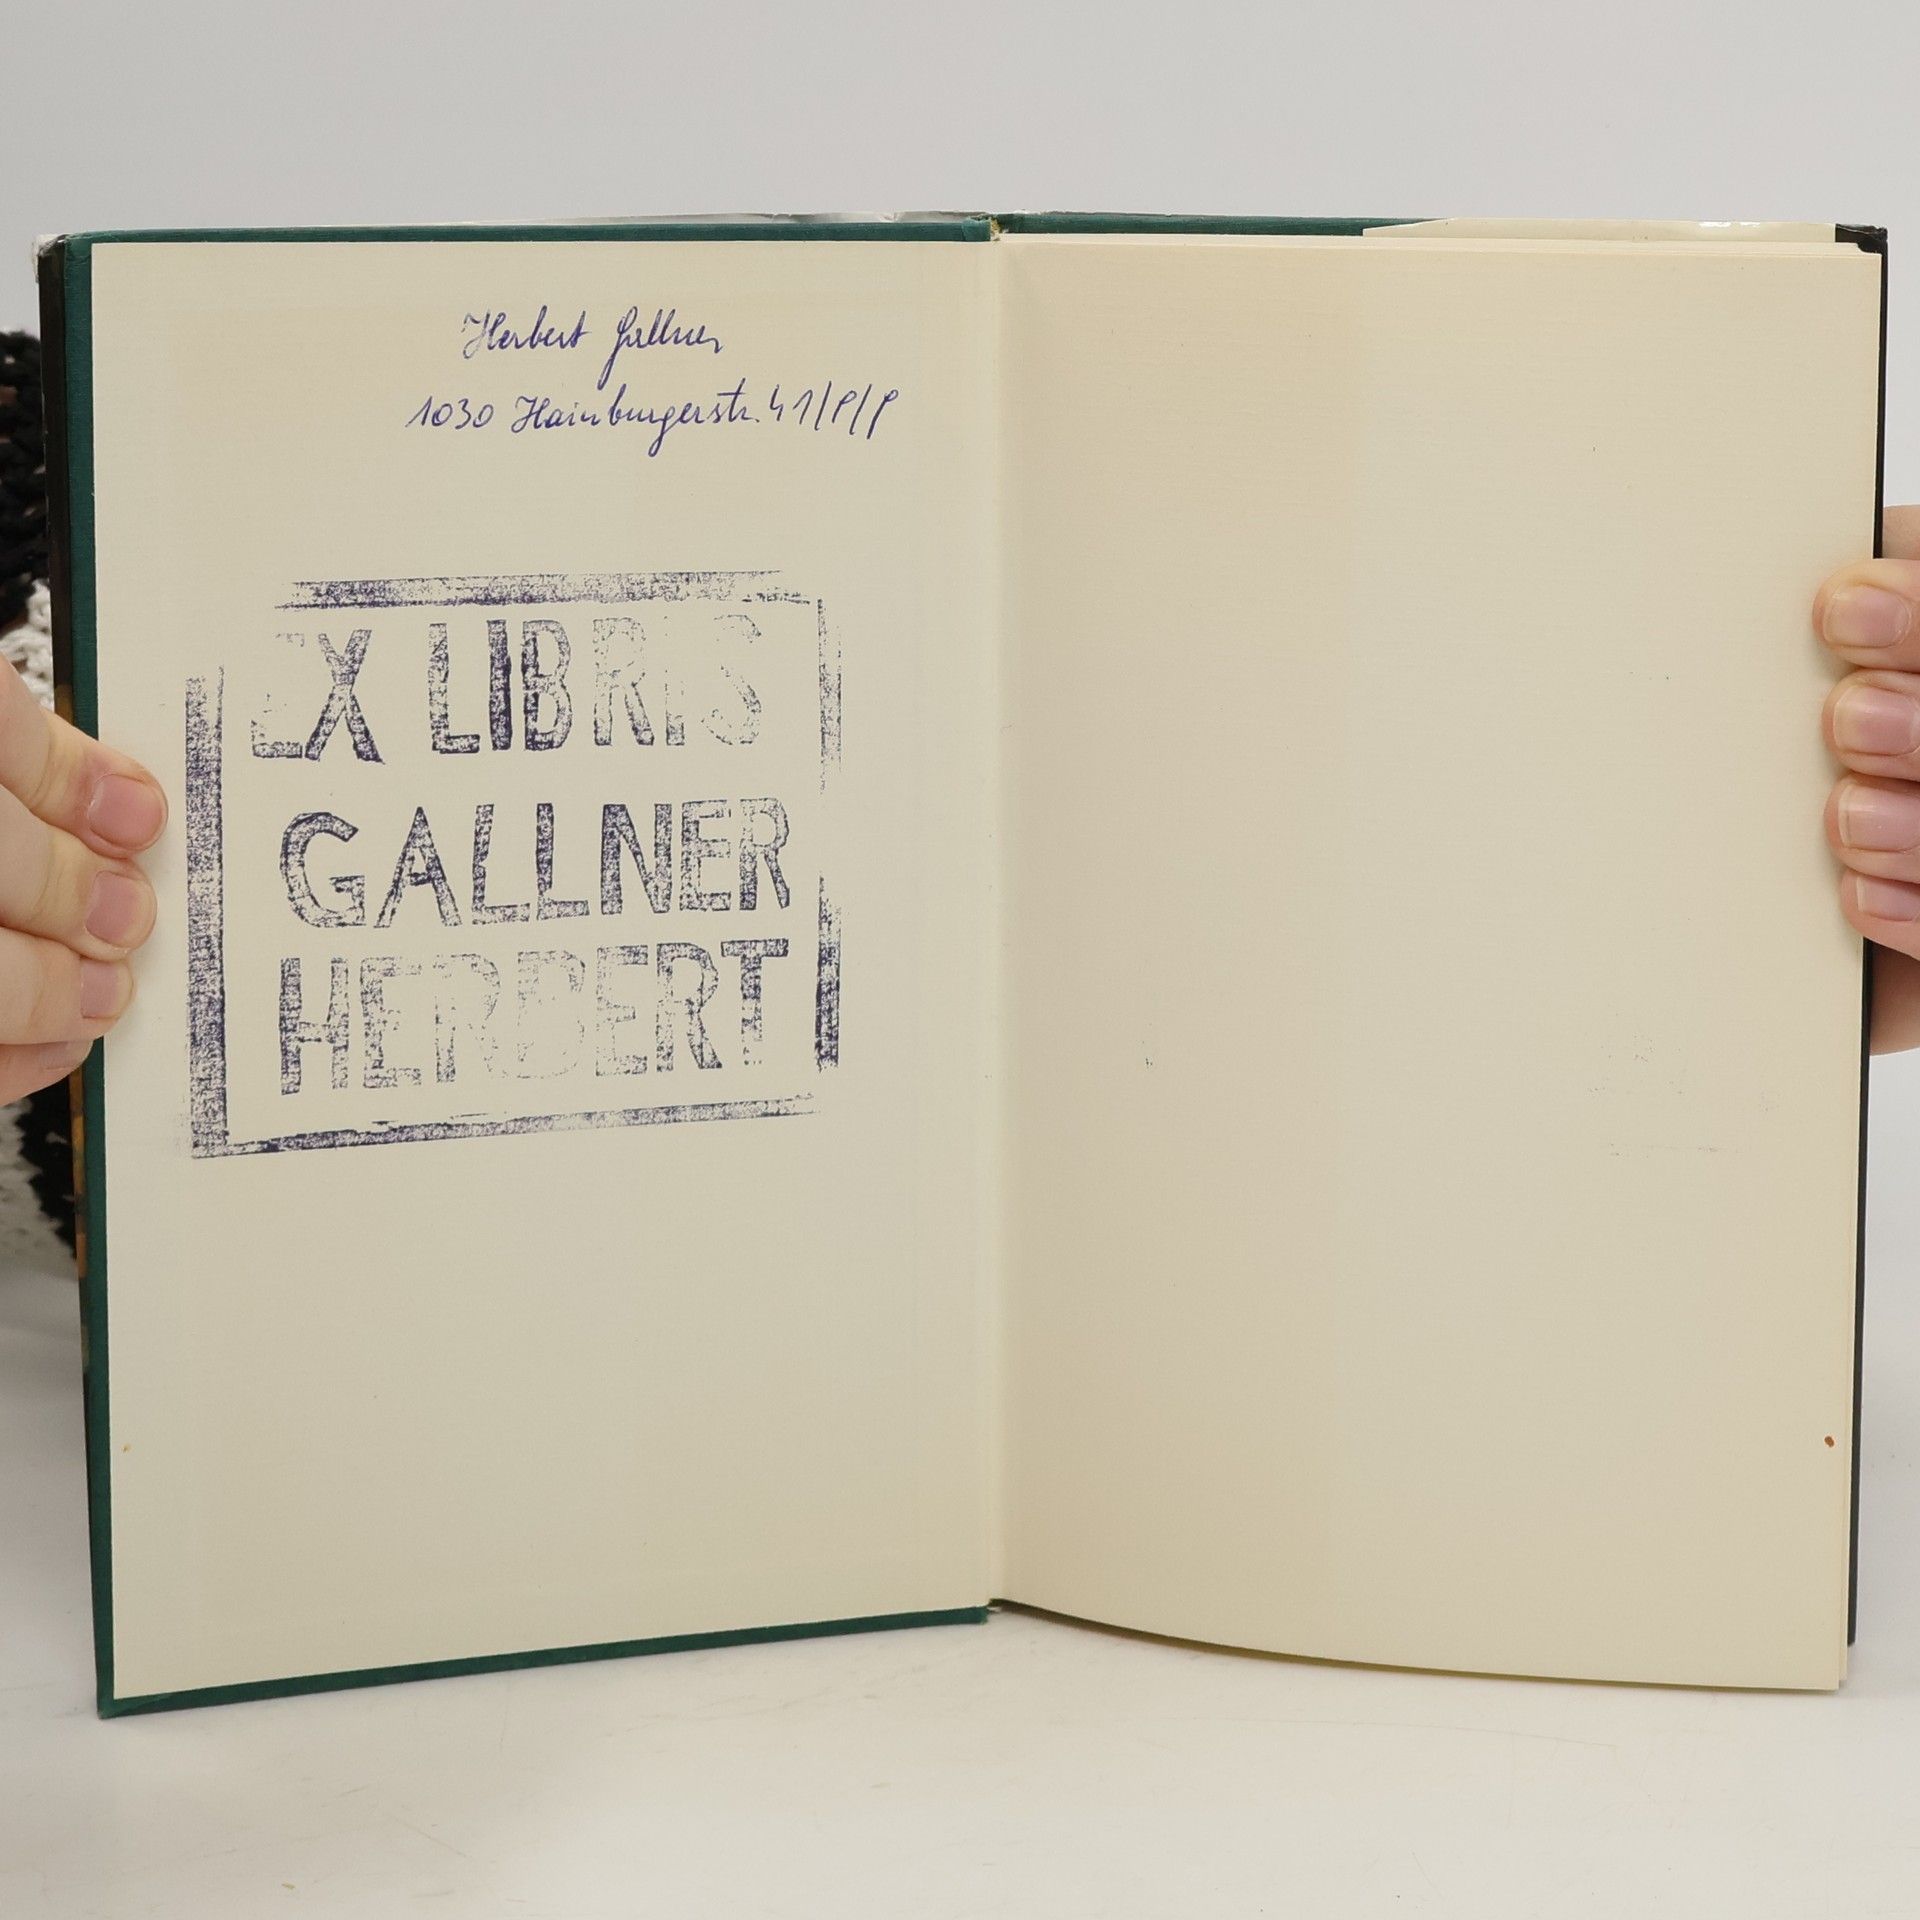 Herbert Gallner
1030 Hainburgerstr. 41/P/P
EX LIBRIS
GALLNER
HERBERT